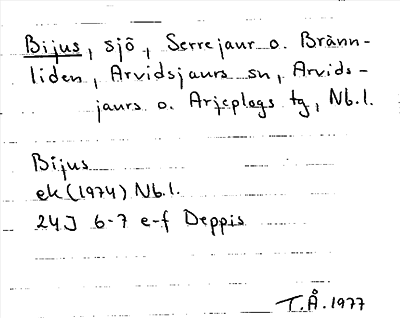 Bijus, sjö, Serrejaur o. Bränn-
liden, Arvidsjaurs sn, Arvids-
jaurs o. Arjeplogs tg, Nb.l.
Bijus
ek (1974) Nb.l.
24J 6-7 e-f Deppis
T.Å. 1977